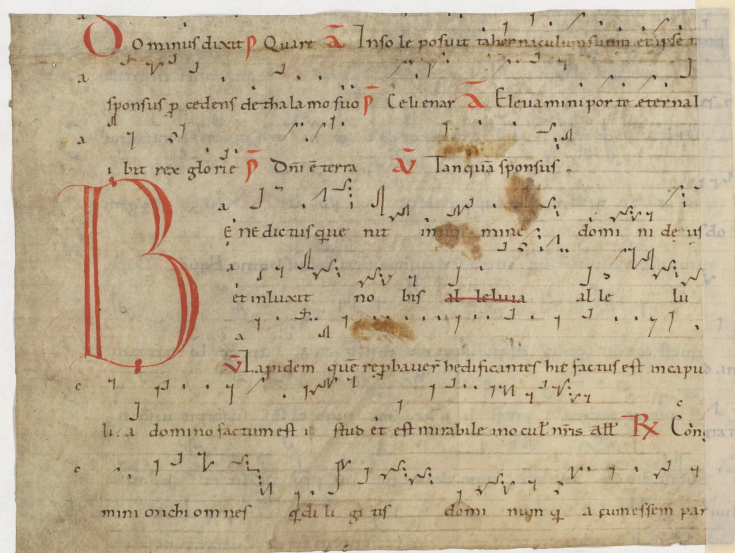 Dominus dixit p Quare A Insole posuit tabernaculum suum et ipse tanq
sponsus p cedens dethalamo suo P Celi enar A Elevamini porte eternal
i bit rex glorie P Dñi ē terra AV Tanquā sponsus.
Benedictus que nit in nomine domi ni deus do
et inluxit no bis al leluia al le lu
V Lapidem quē repbaver hedificantes hic factus est incapu
li. a domino factum est i stud et est mirabile inocul nris all R Cong
mini onchi omnes q di li gi tis domi num q a cum essem par